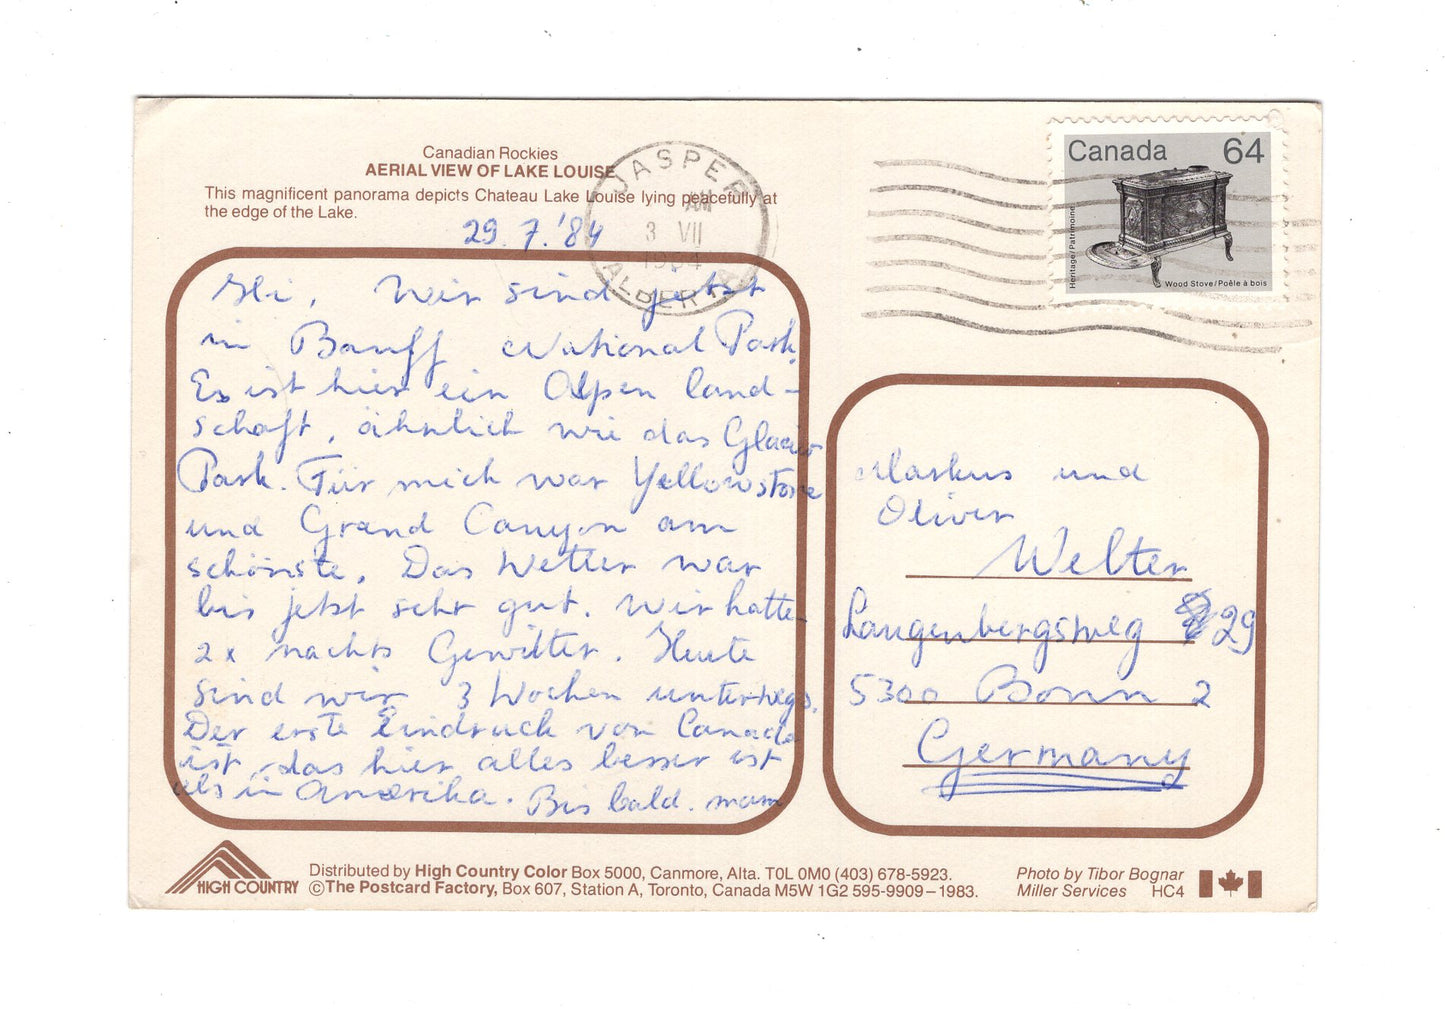 Canadian Rockies
AERIAL VIEW OF LAKE LOUISE
This magnificent panorama depicts Chateau Lake Louise lying peacefully at
the edge of the Lake.
29.7.'84
JASPER
AM
3 VII
1984
ALBERTA
Canada 64
Heritage/Patrimoine
Wood Stove/Poêle à bois
Hi, Wir sind jetzt
in Banff National Park.
Es ist hier ein Alpen land-
schaft, ähnlich wie das Glacier
Park. Für mich war Yellowstone
und Grand Canyon am
schönste. Das Wetter war
bis jetzt sehr gut. Wir hatte
2x nachts Gewitter. Heute
sind wir 3 Wochen unterwegs.
Der erste Eindruck von Canada
ist, das hier alles besser ist
als in Amerika. Bis bald. mam
Markus und
Oliver
Welter
Langenbergsweg 29
5300 Bonn 2
Germany
HIGH COUNTRY
Distributed by High Country Color Box 5000, Canmore, Alta. T0L 0M0 (403) 678-5923.
©The Postcard Factory, Box 607, Station A, Toronto, Canada M5W 1G2 595-9909–1983.
Photo by Tibor Bognar
Miller Services HC4